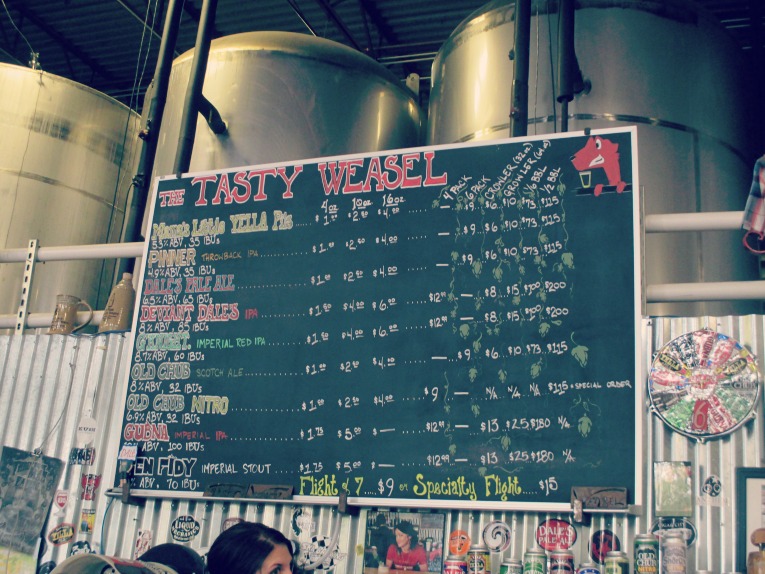 THE TASTY WEASEL
4oz 10oz 16oz 4 PACK 6 PACK CROWLER (32oz) GROWLER (64oz) 1/6 BBL 1/2 BBL
Mama's Little YELLA Pils $1.00 $2.50 $4.00 — $9 $6 $10 $73 $115
5.3% ABV, 35 IBUs
PINNER THROWBACK IPA $1.00 $2.50 $4.00 — $9 $6 $10 $73 $115
4.9% ABV, 35 IBUs
DALE'S PALE ALE $1.00 $2.50 $4.00 — $9 $6 $10 $73 $115
6.5% ABV, 65 IBUs
DEVIANT DALE'S IPA $1.50 $4.00 $6.00 $12.99 — $8 $15 $100 $200
8% ABV, 85 IBUs
G'KNIGHT IMPERIAL RED IPA $1.50 $4.00 $6.00 $12.99 — $8 $15 $100 $200
8.7% ABV, 60 IBUs
OLD CHUB SCOTCH ALE $1.00 $2.50 $4.00 — $9 $6 $10 $73 $115
8% ABV, 32 IBUs
OLD CHUB NITRO $1.00 $2.50 $4.00 $9 — N/A N/A N/A $115 *SPECIAL ORDER
6.9% ABV, 32 IBUs
GUBNA IMPERIAL IPA $1.75 $5.00 $— $12.99 — $13 $25 $180 N/A
ABV, 100 IBUs
TEN FIDY IMPERIAL STOUT $1.75 $5.00 $— $12.99 — $13 $25 $180 N/A
ABV, 70 IBUs
Flight of 7 $9 or Specialty Flight $15
LIQUID
DALE'S
PALE ALE
OLD CHUB